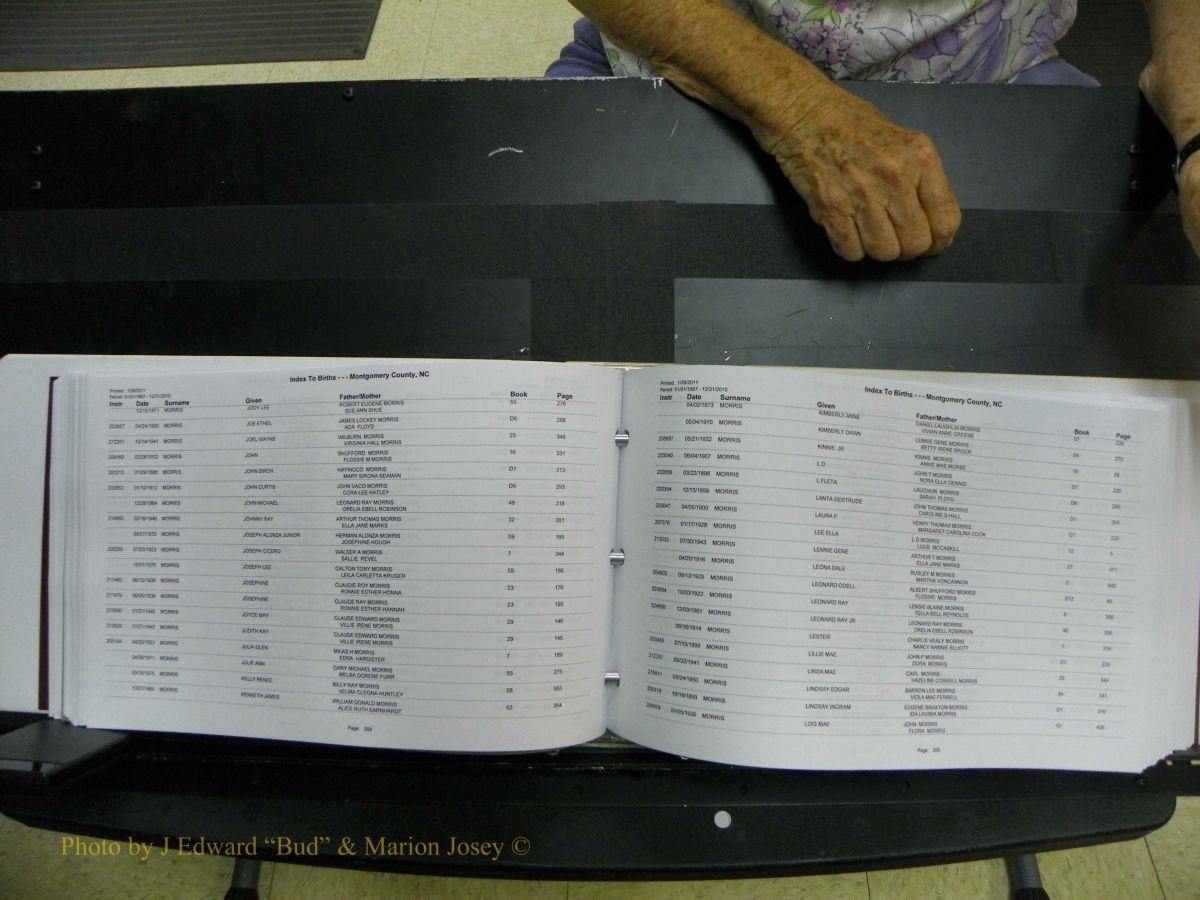 Index To Births - - - Montgomery County, NC
Printed: 1/28/2011
Period: 01/01/1867 - 12/31/2010
Instr Date Surname Given Father/Mother Book Page
12/15/1971 MORRIS JODY LEE ROBERT EUGENE MORRIS 55 276
SUE ANN SHUE
04/24/1920 MORRIS JOE ETHEL JAMES LOCKEY MORRIS D6 288
ADA FLOYD
10/14/1941 MORRIS JOEL WAYNE WILBURN MORRIS 25 348
VIRGINIA HALL MORRIS
MORRIS JOHN SHUFFORD MORRIS 16 331
FLOSSIE M MORRIS
200313 MORRIS JOHN BIRCH HAYWOOD MORRIS D1 313
MARY SIRONA SEAMAN
01/12/1912 MORRIS JOHN CURTIS JOHN VACO MORRIS D6 293
CORA LEE HATLEY
12/28/1964 MORRIS JOHN MICHAEL LEONARD RAY MORRIS 48 318
ORELIA EBELL ROBINSON
MORRIS JOHNNY RAY ARTHUR THOMAS MORRIS 32 261
ELLA JANE MARKS
MORRIS JOSEPH ALONZA JUNIOR HERMAN ALONZA MORRIS 59 185
JOSEPHINE HOUGH
MORRIS JOSEPH CICERO WALSER A MORRIS 7 344
SALLIE REVEL
MORRIS JOSEPH LEE CALTON TONY MORRIS 59 186
LEILA CARLETTA KRUGER
MORRIS JOSEPHINE CLAUDIE ROY MORRIS 23 176
RONNIE ESTHER HONNA
MORRIS JOSEPHINE CLAUDE RAY MORRIS 23 195
RONNIE ESTHER HANNAH
01/21/1945 MORRIS JOYCE MAY CLAUDE EDWARD MORRIS 29 146
VILLIE IRENE MORRIS
01/21/1945 MORRIS JUDITH KAY CLAUDE EDWARD MORRIS 29 145
VILLIE IRENE MORRIS
MORRIS JULIA GLEN MILAS H MORRIS 7 189
EDNA HARDISTER
MORRIS JULIE ANN GARY MICHAEL MORRIS 55 275
MELBA DORENE FURR
MORRIS KELLY RENEE BILLY RAY MORRIS 58 555
VELMA GLEGNA HUNTLEY
MORRIS KENNETH JAMES WILLIAM DONALD MORRIS 52 264
ALICE RUTH EARNHARDT
Page 208
Printed: 1/28/2011
Period: 01/01/1867 - 12/31/2010
Index To Births - - - Montgomery County, NC
Instr Date Surname Given Father/Mother Book Page
04/02/1973 MORRIS KIMBERLY ANNE DANIEL LAUGHLIN MORRIS 57
VIVIAN ANNE GREENE
05/04/1970 MORRIS KIMBERLY DAWN LENNIE GENE MORRIS 54 270
BETTY IRENE BROOK
05/21/1932 MORRIS KINNIE JR KINNIE MORRIS 16
ANNIE MAE MORSE
203040 06/04/1907 MORRIS L D JOHN T MORRIS D7
NORA ELLA DENNIS
03/22/1898 MORRIS L FLETA LAUGHLIN MORRIS D6
SARAH FLOYD
200354 12/13/1899 MORRIS LANTA GERTRUDE JOHN THOMAS MORRIS D1
CAROLINE S HALL
203047 04/05/1900 MORRIS LAURA F HENRY THOMAS MORRIS D7
MARGARET CAROLINA COOK
207376 01/17/1928 MORRIS LEE ELLA L D MORRIS 12
LULIS MCCASKILL
213032 07/30/1943 MORRIS LENNIE GENE ARTHUR T MORRIS
ELLA JANE MARKS
04/20/1916 MORRIS LEONA DALE RUSLEY M MORRIS
MARTHA VONCANNON
09/13/1925 MORRIS LEONARD ODELL ALBERT SHUFFORD MORRIS D12
FLOSSIE MORRIS
10/20/1922 MORRIS LEONARD RAY LENSIE BLAINE MORRIS
TELLA BELL REYNOLDS
12/03/1961 MORRIS LEONARD RAY JR LEONARD RAY MORRIS
ORELIA EBELL ROBINSON
06/16/1914 MORRIS LESTER CHARLIE VEALY MORRIS
NANCY NANNIE ELLIOTT
203049 07/15/1899 MORRIS LILLIE MAE JOHN P MORRIS D7
DORA MORRIS
212257 MORRIS LINDA MAE CARL MORRIS
HAZELINE CORRELL MORRIS
03/24/1950 MORRIS LINDSAY EDGAR BARRION LEE MORRIS 34 341
VIOLA MAE FERRELL
200319 10/19/1893 MORRIS LINDSAY INGRAM EUGENE BRAXTON MORRIS D1 319
IDA LAVINIA MORRIS
01/05/1926 MORRIS LOIS MAE JOHN MORRIS 10
FLORA MORRIS
Page 209
Photo by J Edward “Bud” & Marion Josey ©